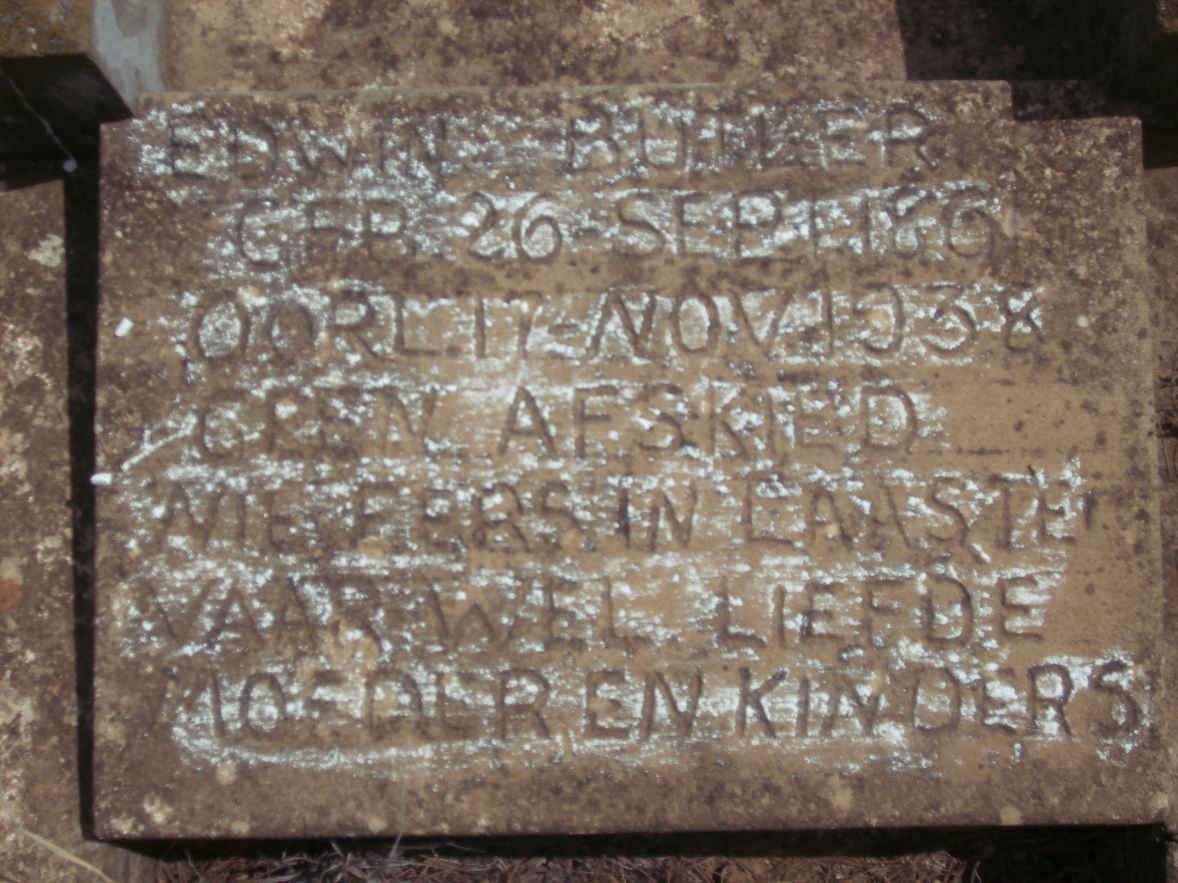 EDWIN BUTLER
GEB. 26-SEPT
OORL 17-NOV 1938
GEEN AFSKIED
NIE EERS 'N LAASTE
VAARWEL LIEFDE
MOEDER EN KINDERS